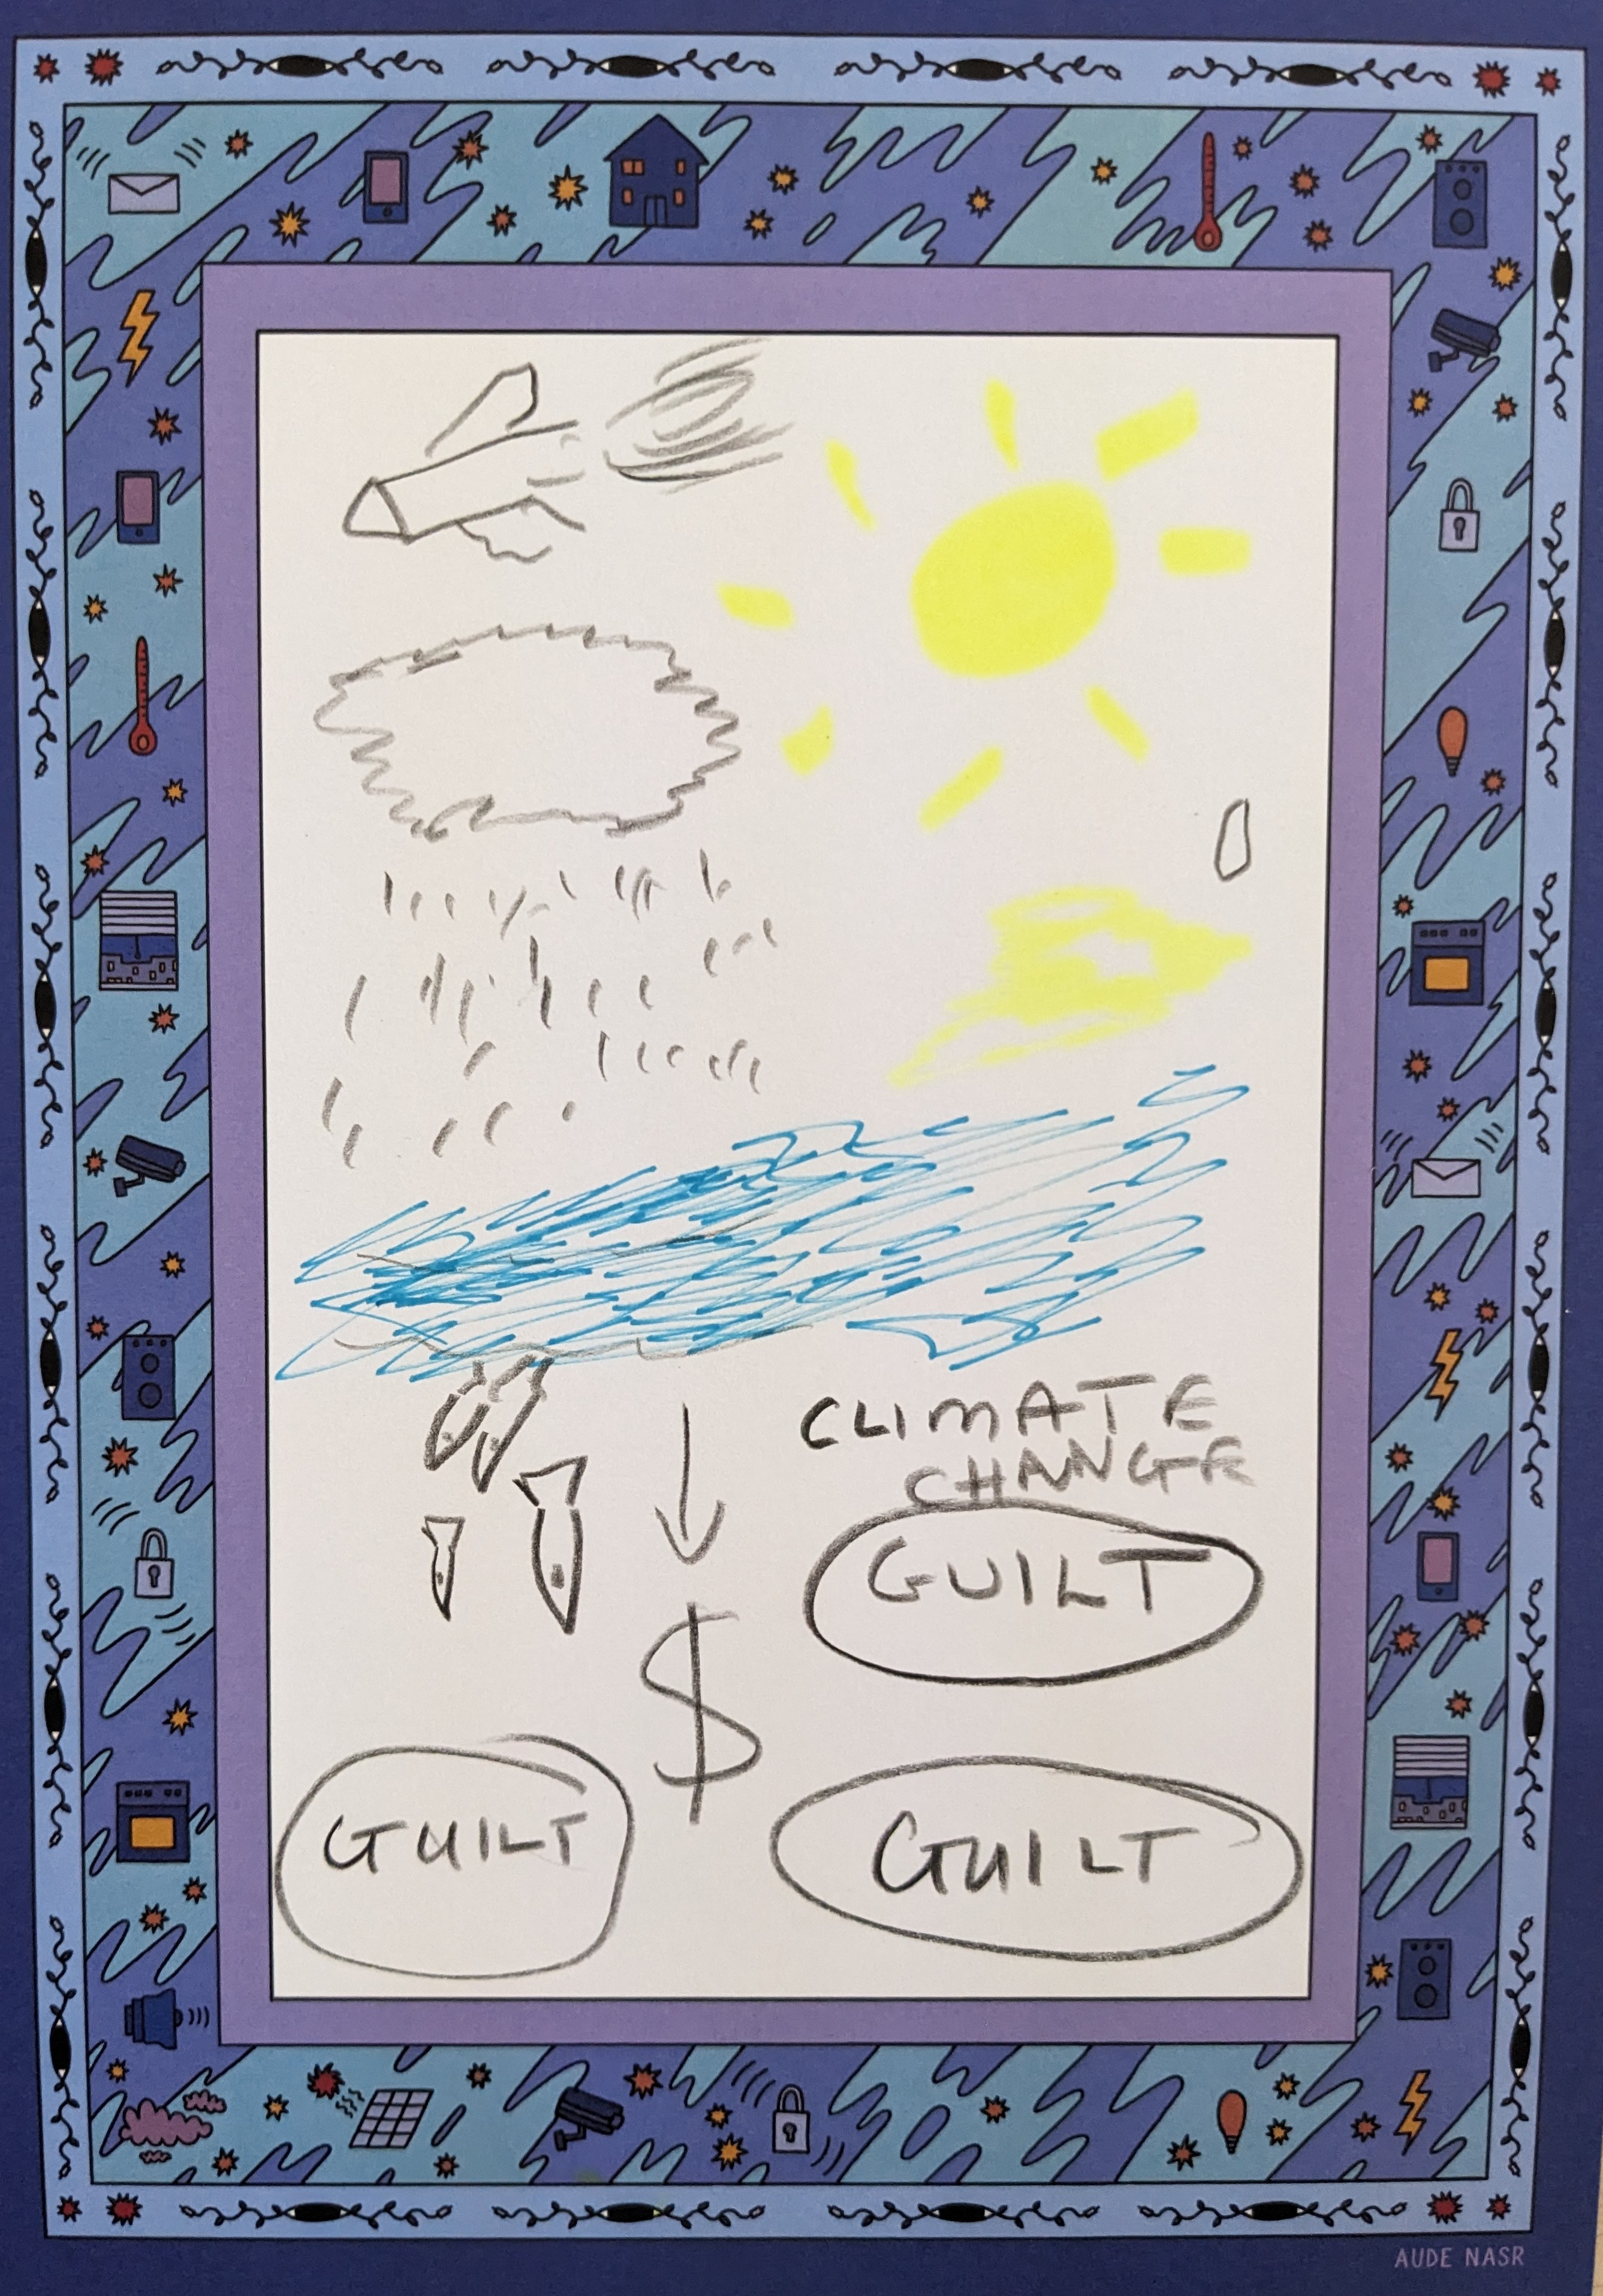 CLIMATE
CHANGE
GUILT
$
GUILT
GUILT
AUDE NASR